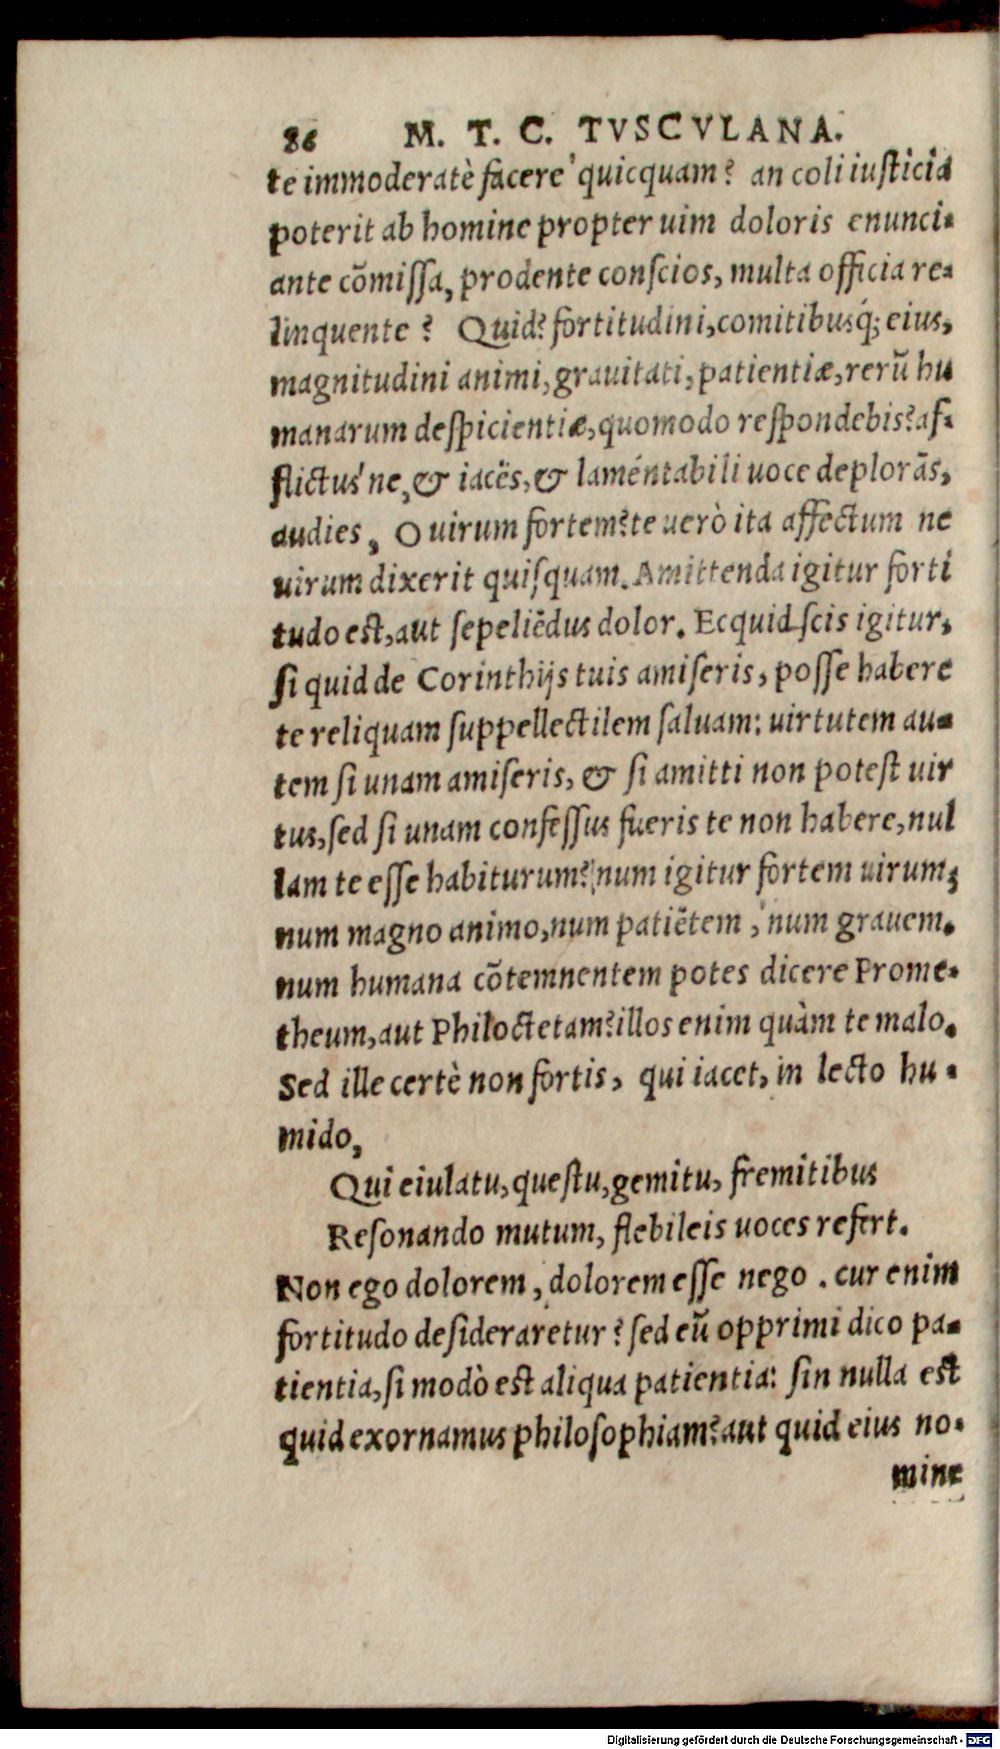 86 M. T. C. TVSCVLANA.
te immoderatè facere quicquam? an coli iusticia
poterit ab homine propter uim doloris enunci-
ante cõmissa, prodente conscios, multa officia re-
linquente? Quid? fortitudini, comitibusq́; eius,
magnitudini animi, grauitati, patientiæ, rerũ hu
manarum despicientiæ, quomodo respondebis? af-
flictus ne, & iacẽs, & lamentabili uoce deplorãs,
audies, O uirum fortem? te uerò ita affectum ne
uirum dixerit quisquam. Amittenda igitur forti
tudo est, aut sepeliẽdus dolor. Ecquid scis igitur,
si quid de Corinthijs tuis amiseris, posse habere
te reliquam suppellectilem saluam: uirtutem au-
tem si unam amiseris, & si amitti non potest uir
tus, sed si unam confessus fueris te non habere, nul
lam te esse habiturum? num igitur fortem uirum,
num magno animo, num patiẽtem, num grauem.
num humana cõtemnentem potes dicere Prome-
theum, aut Philoctetam? illos enim quàm te malo.
Sed ille certè non fortis, qui iacet, in lecto hu-
mido,
Qui eiulatu, questu, gemitu, fremitibus
Resonando mutum, flebileis uoces refert.
Non ego dolorem, dolorem esse nego. cur enim
fortitudo desideraretur? sed eũ opprimi dico pa-
tientia, si modò est aliqua patientia: sin nulla est
quid exornamus philosophiam? aut quid eius no-
mine
Digitalisierung gefördert durch die Deutsche Forschungsgemeinschaft - DFG